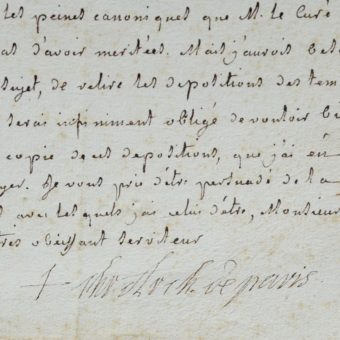 les peines canoniques que M. le Curé
as d'avoir meritées. Mais j'aurois bes
sujet, de relire les depositions des tem
serai infiniment obligé de vouloir bi
copie de ces depositions, que j'ai en
yer. Je vous prie d'être persuadé de la
avec lesquels j'ai celui d'être, Monsieur
tres obeissant serviteur
+ de paris